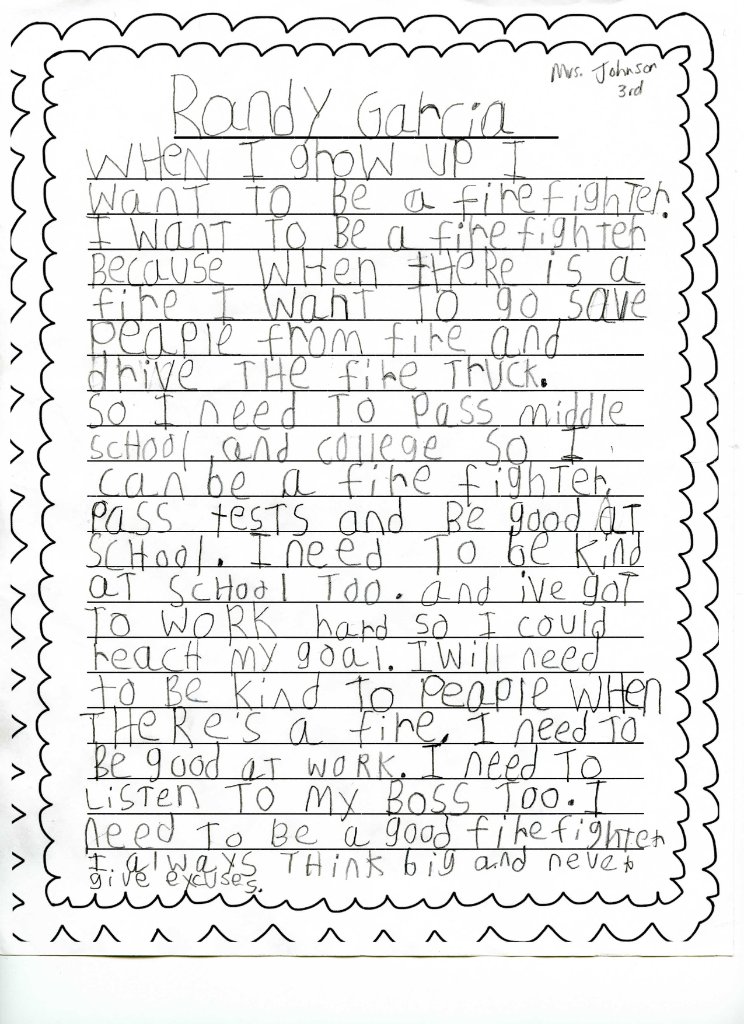 Mrs. Johnson
3rd
Randy Garcia
WHEN I grow UP I
WanT TO Be a firefighter.
I WanT TO Be a firefighter
BecaUSe WHen tHeRe is a
fire I WanT TO go save
peaple from fire and
drive THe fire TrUCK.
So I need TO Pass middle
SCHOOl and college So I
can be a fire fighter.
Pass tests and Be good AT
SCHool. I need TO be Kind
aT SCHool TOO. and ive goT
TO WORK hard so I could
reach my goal. I Will need
to Be Kind To Peaple WHen
THeRe's a fire. I need TO
Be good aT WORK. I need TO
LiSTen TO My BOSS TOO. I
need To Be a good firefighter
I always THink big and never
give excuses.